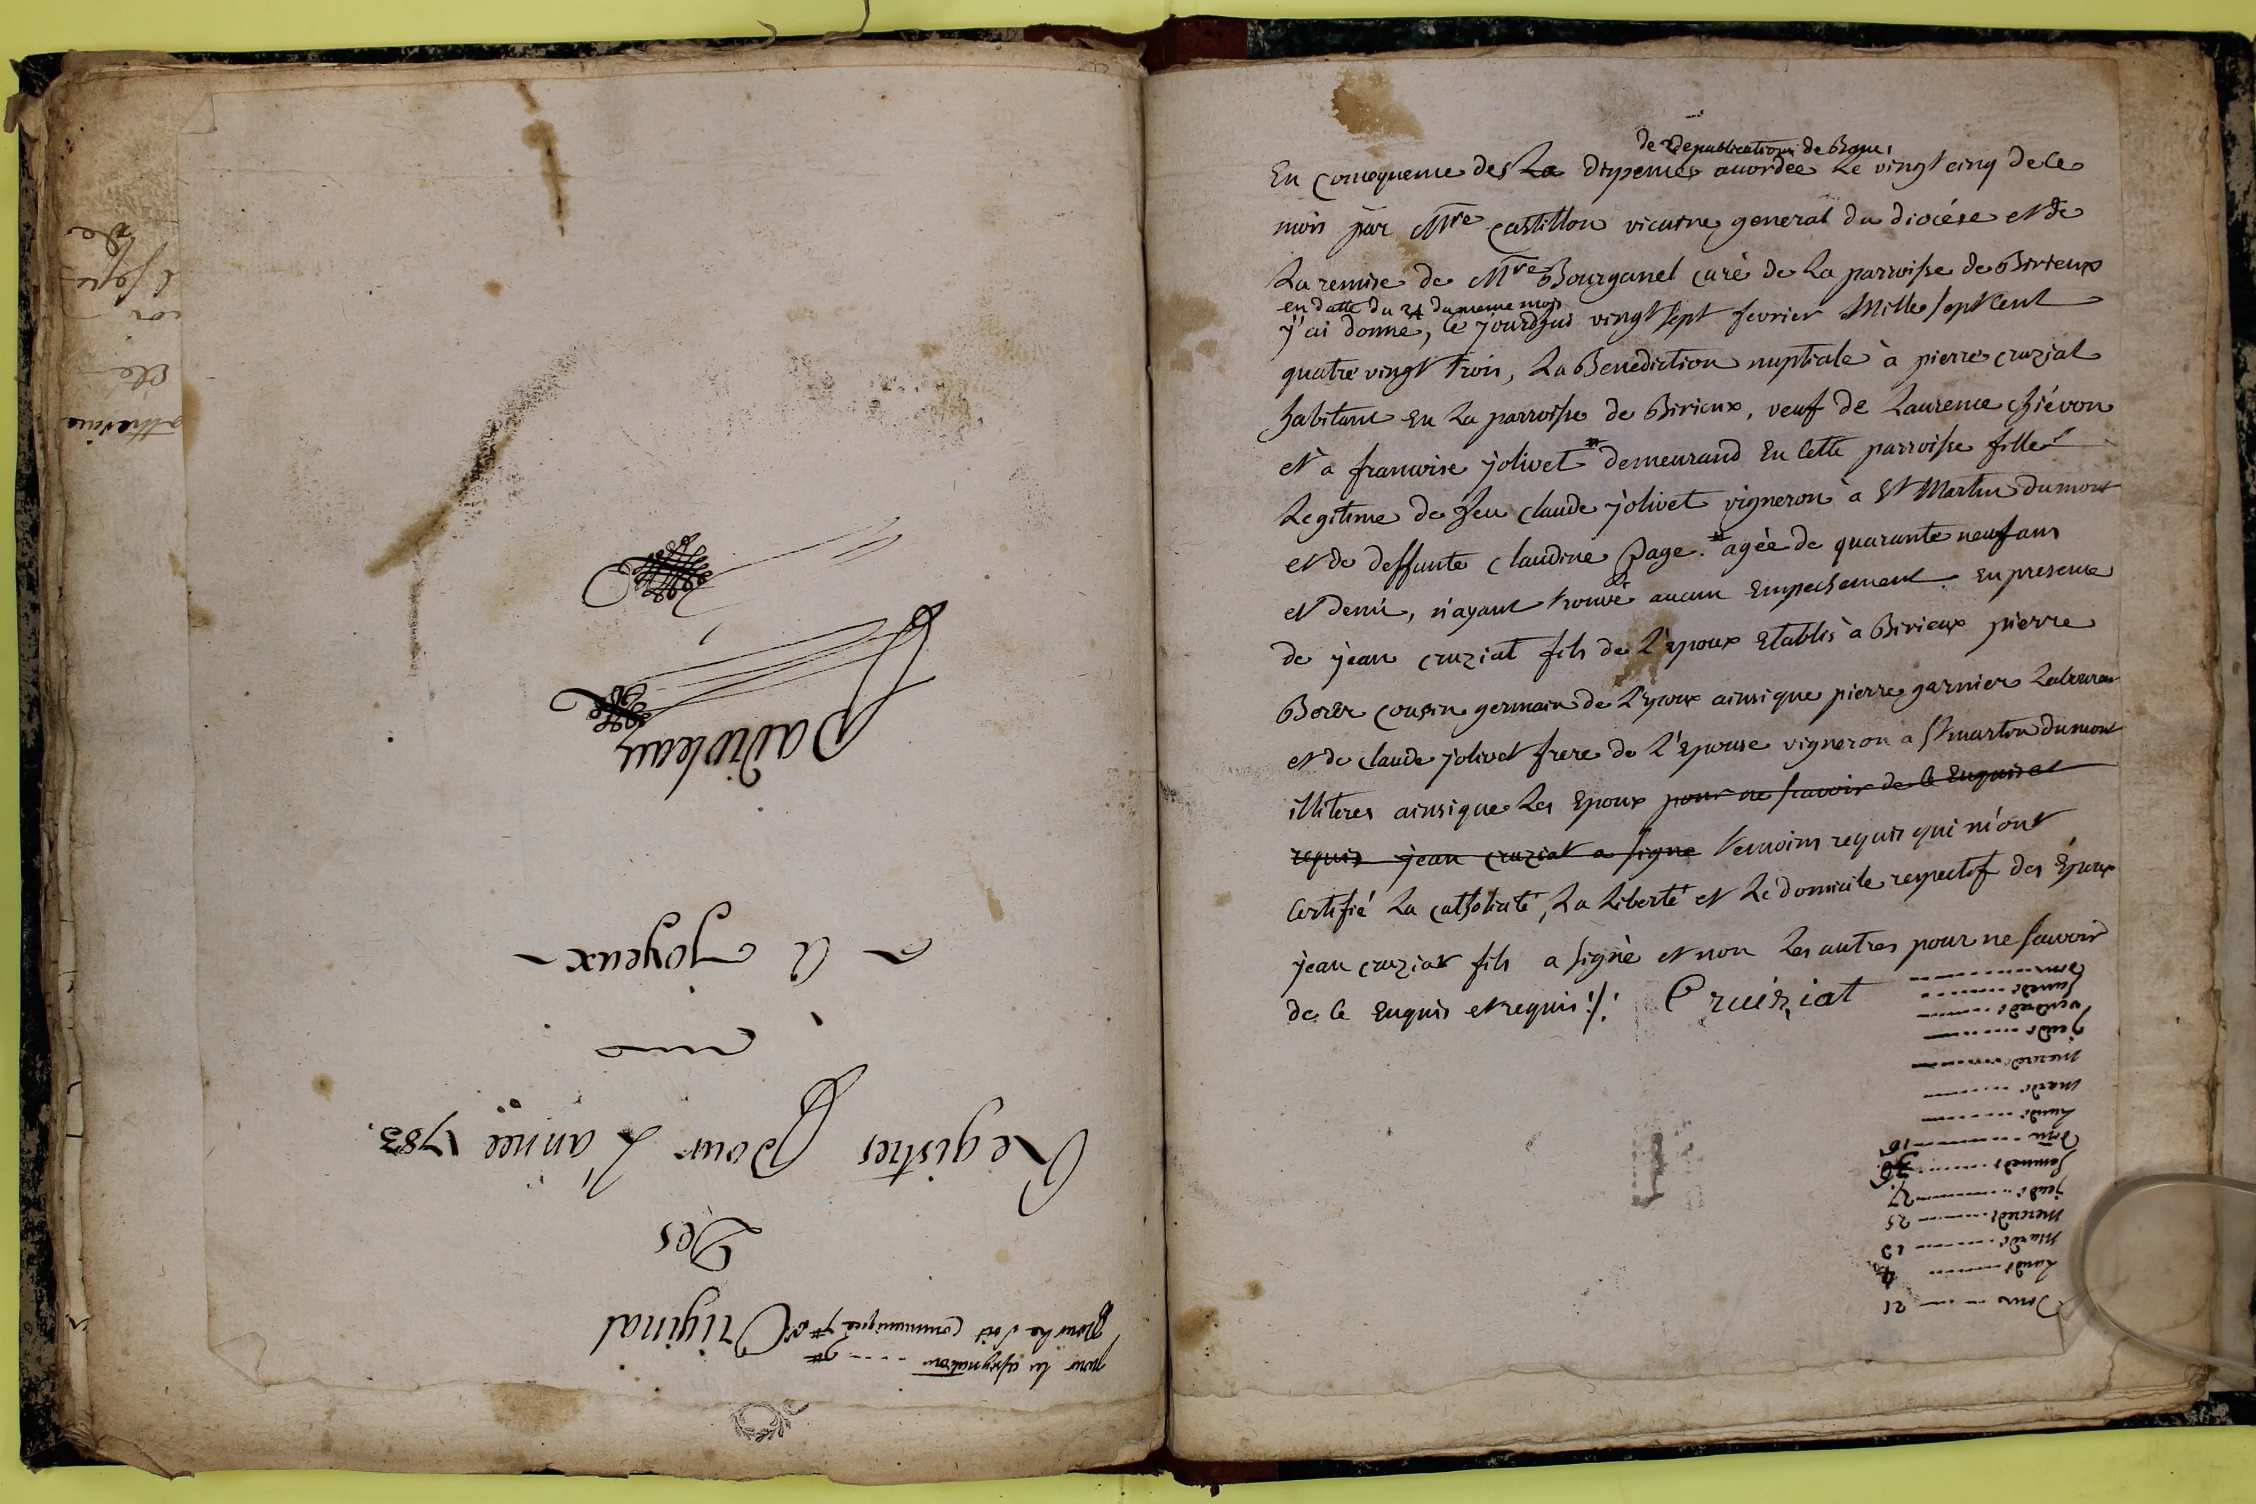 pour les assignations .... 2#
pour le soit communiqué 7# &
Original
Des
Registres Pour L'année 1783.
a Joyeux
Padioleau
de 2de publications de Bans
En consequence des La dispenses accordée Le vingt cinq de ce
mois par Mre Castillon vicaire general du diocése et de
La remise de Mre Bourganel curé de La parroisse de Birieux
en datte du 24 du meme mois
j'ai donné, ce jourdhui vingt sept fevrier Mille sept Cent
quatre vingt trois, La Benediction nuptiale à pierre cruziat
habitant En La parroisse de Birieux, veuf de Laurence chiévon
et a francoise jolivet # demeurand En Cette parroisse fille
Legitime de feu Claude jolivet vigneron a St Martin Dumont
et de deffunte Claudine Page. # agée de quarante neuf ans
et demi, n'ayant trouvé aucun Empechement. En presence
de jean cruziat fils de L'Epoux Etablis a Birieux pierre
Borer cousin germain de L'Epoux ainsique pierre garnier Laboureur
et de Claude jolivet frere de L'Epouse vigneron a St martin Dumont
illiteres ainsique Les Epoux pour ne scavoir de Ce Enquis et
requis jean cruziat a signé temoins requis qui m'ont
Certifié La catholicité, La Liberté et Le domicile respectif des Epoux
jean cruziat fils a signé et non Les autres pour ne scavoir
de Ce Enquis et requis ./.
Cruiziat
Dim
21
Lundi
4
Mardi
13
Mercredi
25
jeudi
27
Samedi
36
Dim
16
Lundi
mardi
mercredi
Jeudi
vendredi
Samedi
Dim